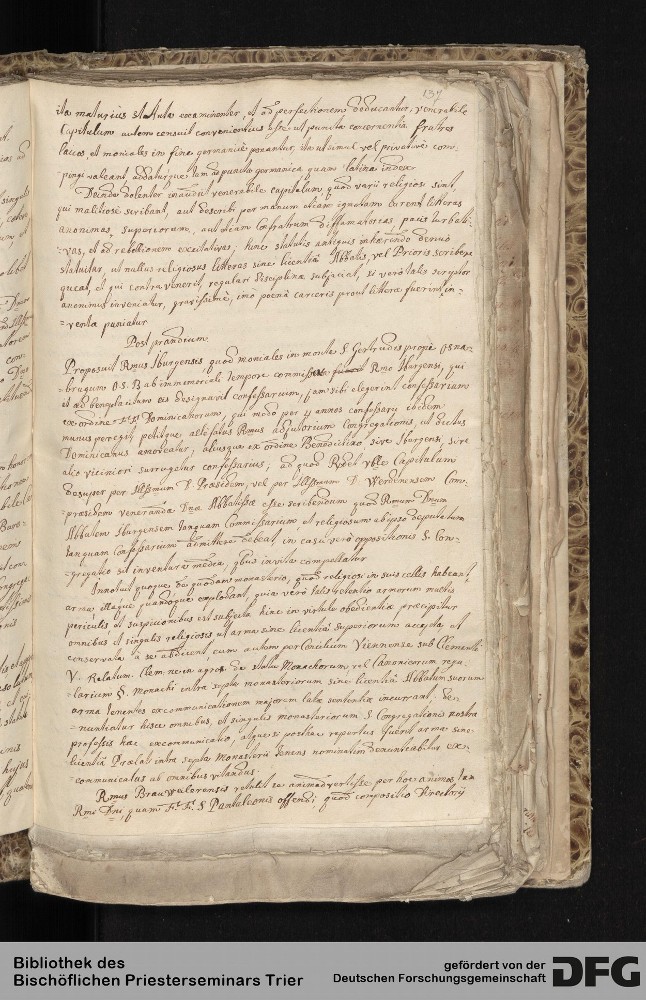 137
ita maturius statuta examinentur, et ad perfectionem deducantur, venerabile
Capitulum autem censuit convenientius esse ut puncta concernentia fratres
laicos, et moniales in fine germanicè ponantur, ita ut simul vel privative com-
pingi valeant, addaturque tam de puncto germanica quam latina index
Deinde dolenter inaudiit venerabile capitulum, quod varii religiosi sint,
qui malitiosè scribant, aut describi per manum etiam ignotam curent litteras
anonimas, superiorum, aut etiam Confratrum diffamatorias, pacis turbati-
vas, et ad rebellionem excitativas; hinc statutis antiquis inhaerendo denuò
statuitur, ut nullus religiosus litteras sine licentiâ Abbatis, vel Prioris scribere
queat, et qui contravenerit, regulari disciplinae subjaceat, si verò talis scriptor
anonimus inveniatur, gravissimè, imò poenâ carceris prout litterae fuerint in-
=venta puniatur
Post prandium
Proposuit Rmus Iburgensis quod moniales in monte S. Gertrudis propè Osna-
brugum O.S.B. ab immemoriali tempore Rmo Iburgensi, qui
eis designavit confessarium, jam sibi elegerint confessarium
ex ordine FF. Dominicanorum, qui modo per 4 annos confessarii ibidem
munus peregit, petiitque Rmus adjutorium Congregationis, ut dictus
Dominicanus amoveatur, aliusque ex ordine Benedictino sive Iburgensi, sive
alio viciniori surrogetur confessarius; ad quod Rdum Capitulum
desuper per Illssmum D. Praesidem, vel per D. Werdinensem Com-
praesidem venerandae Dnae Abbatissae esse scribendum quod Rmum Dnum
Abbatem Iburgensem tanquam Commissarium et religiosum ab ipso deputatum
tanquam Confessarium admittere debeat, in casu verò oppositionis S. Con-
=gregatio sit inventura media, qbus invita compellatur
Innotuit quoque de quodam monasterio, quod religiosi in suis cellis habeant
arma illaque quandoque explodant, quia verò talis retentio armorum multis
periculis et suspicionibus est subjecta hinc in virtute obedientiae praecipitur
omnibus et singulis religiosis ut arma sine licentiâ superiorum accepta et
conservata à se abdicent, cum autem per Concilium Viennense sub Clemente
V. Relatum. Clem: ne in agro. de statu Monachorum vel Canonicorum regu-
=larium §. monachi intra septa monasteriorum sine licentiâ Abbatum suorum
arma tenentes excommunicationem majorem latae sententiae incurrant, de-
nuntiatur hisce omnibus, et singulis monasteriorum S. Congregationis nostrae
professis haec excommunicatio, atque si posthac repertus fuerit arma sine
licentiâ Praelati intra septa Monasterii tenens nominatim denunciabitur ex-
=communicatus ab omnibus vitandus.
Rmus Brauweilerensis retulit se animadvertisse per hoc animos tam
Rmi Dni, quam FF. S. Pantaleonis offendi, quod compositio Directorii
Bibliothek des
Bischöflichen Priesterseminars Trier
gefördert von der
Deutschen Forschungsgemeinschaft
DFG